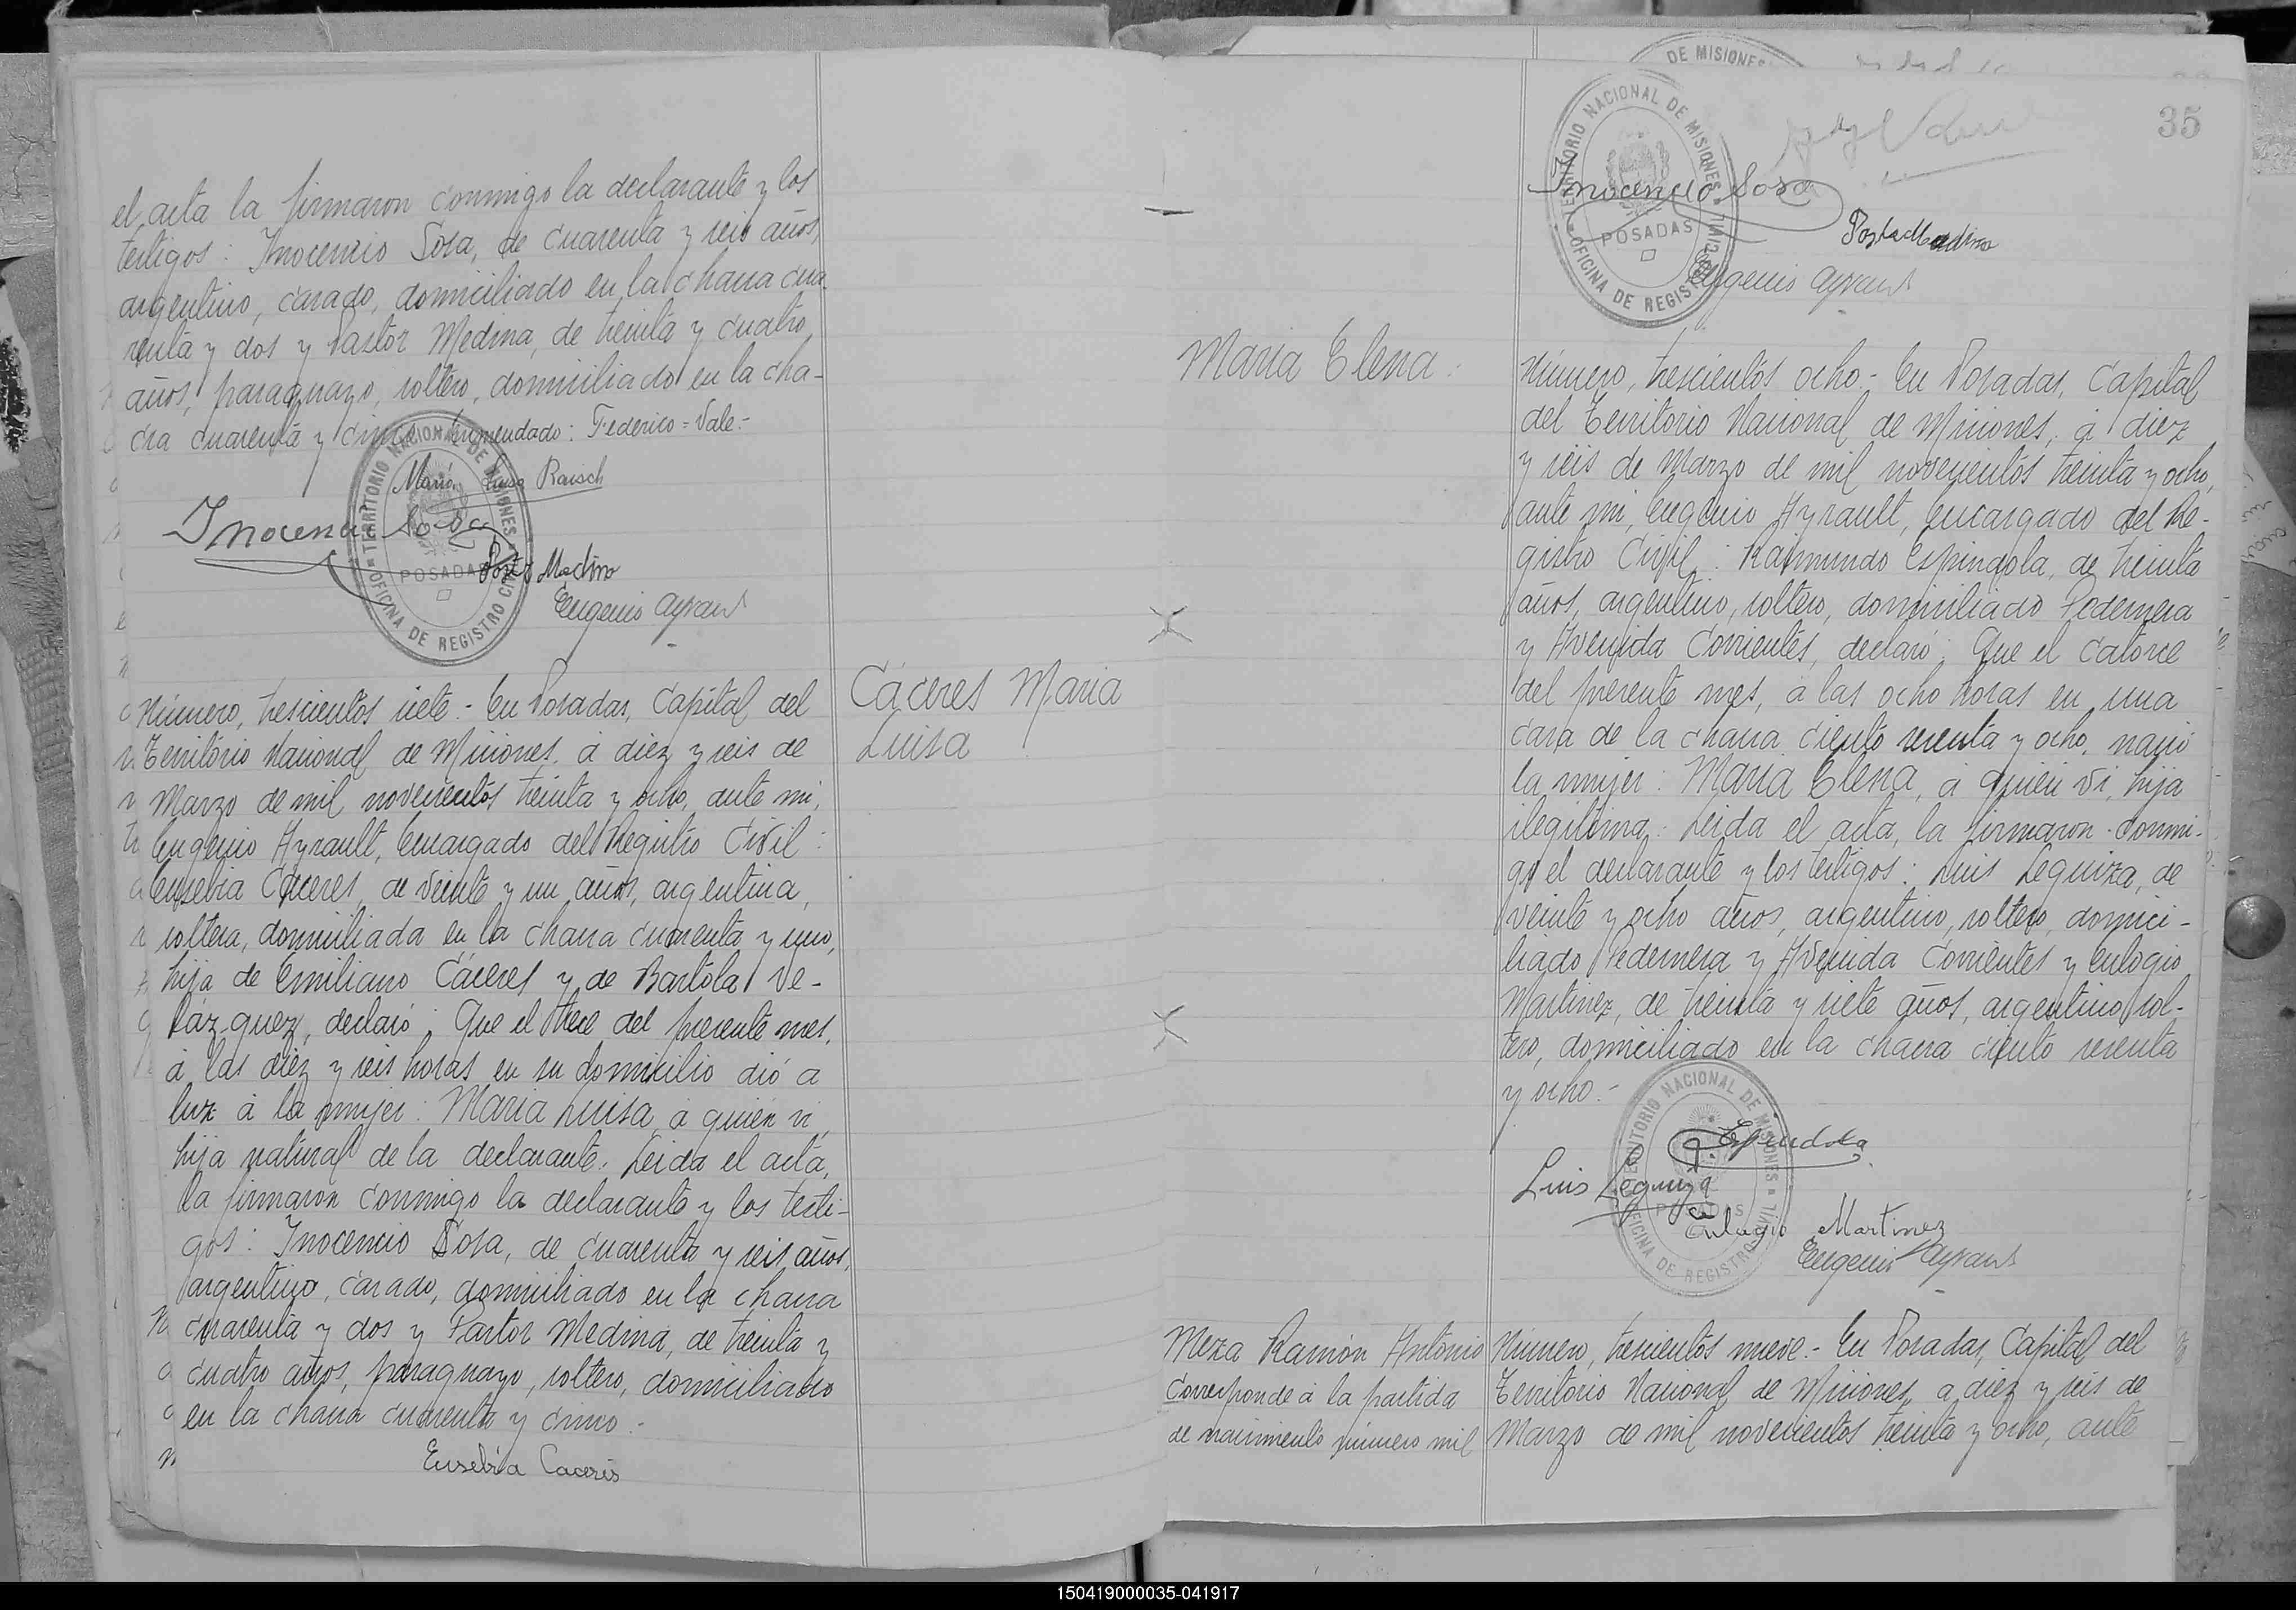 el acta la firmaron conmigo la declarante y los
testigos: Inocencio Sosa, de cuarenta y seis años,
argentino, casado, domiciliado en la chacra cua-
renta y dos y Pastor Medina, de treinta y cuatro
años, paraguayo, soltero, domiciliado en la cha-
cra cuarenta y cinco. Enmendado: Federico = Vale.-
María Luisa Raisch
Inocencio Sosa
Pastor Medina
Eugenio Ayrault
TERRITORIO NACIONAL DE MISIONES
POSADAS
OFICINA DE REGISTRO CIVIL
Cáceres María
Luisa
Número, trescientos siete.- En Posadas, Capital del
Territorio Nacional de Misiones, á diez y seis de
Marzo de mil novecientos treinta y ocho, ante mi,
Eugenio Ayrault, Encargado del Registro Civil:
Eusebia Cáceres, de veinte y un años, argentina,
soltera, domiciliada en la chacra cuarenta y uno,
hija de Emiliano Cáceres y de Bartola Ve-
lázquez, declaró: Que el trece del presente mes,
á las diez y seis horas en su domicilio dió a
luz á la mujer: María Luisa, a quién vi,
hija natural de la declarante. Leída el acta,
la firmaron conmigo la declarante y los testi-
gos: Inocencio Sosa, de cuarenta y seis años,
argentino, casado, domiciliado en la chacra
cuarenta y dos y Pastor Medina, de treinta y
cuatro años, paraguayo, soltero, domiciliado
en la chacra cuarenta y cinco.-
Eusebia Caceres
DE MISIONES
35
TERRITORIO NACIONAL DE MISIONES
POSADAS
OFICINA DE REGISTRO CIVIL
Inocencio Sosa
Pastor Medina
Eugenio Ayrault
María Elena.
Número, trescientos ocho.- En Posadas, Capital
del Territorio Nacional de Misiones, á diez
y seis de Marzo de mil novecientos treinta y ocho,
ante mi, Eugenio Ayrault, Encargado del Re-
gistro Civil: Raimundo Espíndola, de treinta
años, argentino, soltero, domiciliado Pedernera
y Avenida Corrientes, declaró: Que el catorce
del presente mes, á las ocho horas en una
casa de la chacra ciento sesenta y ocho, nació
la mujer: María Elena, á quién vi, hija
ilegítima. Leída el acta, la firmaron conmi-
go el declarante y los testigos: Luis Leguiza, de
veinte y ocho años, argentino, soltero, domici-
liado Pedernera y Avenida Corrientes y Eulogio
Martinez, de treinta y siete años, argentino, sol-
tero, domiciliado en la chacra ciento sesenta
y ocho.-
R. Espindola
Luis Leguiza
Eulogio Martinez
Eugenio Ayrault
TERRITORIO NACIONAL DE MISIONES
POSADAS
OFICINA DE REGISTRO CIVIL
Meza Ramón Antonio
Corresponde á la partida
de nacimiento número mil
Número, trescientos nueve.- En Posadas, Capital del
Territorio Nacional de Misiones, a diez y seis de
Marzo de mil novecientos treinta y ocho, ante
150419000035-041917